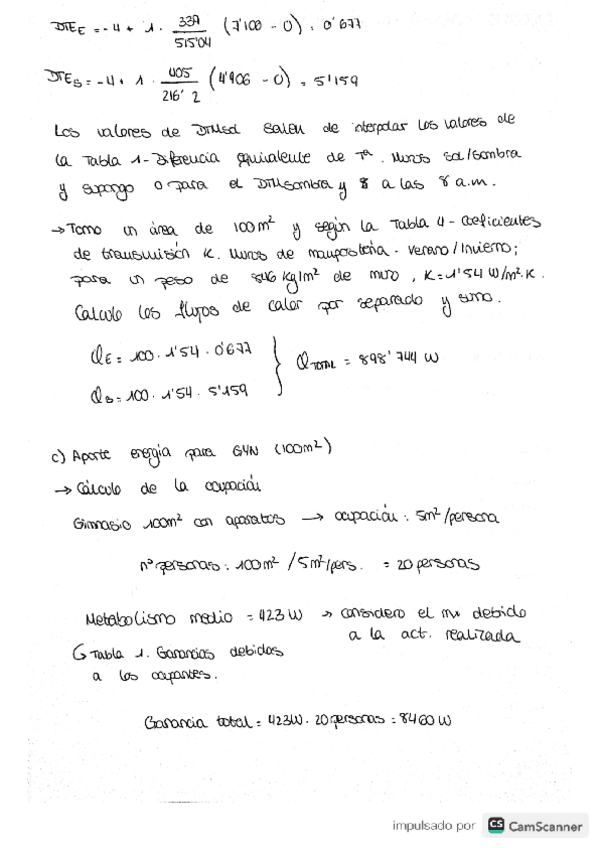 DTE_E = -4 + 1 · 339/515'04 (7'100 - 0) = 0'677
DTE_S = -4 + 1 · 405/216'2 (4'906 - 0) = 5'159
Los valores de DTMsol salen de interpolar los valores de
la Tabla 1 - Diferencia equivalente de Tª. Muros sol/sombra
y supongo 0 para el DTMsombra y 8 a las 8 a.m.
→ Tomo un área de 100 m² y según la Tabla 4 - coeficientes
de transmisión K. Muros de mampostería - verano/Invierno;
para un peso de 546 kg/m² de muro, K = 1'54 W/m²·K.
Calculo los flujos de calor por separado y sumo.
Q_E = 100 · 1'54 · 0'677
Q_TOTAL = 898'744 W
Q_S = 100 · 1'54 · 5'159
c) Aporte energía para GYN (100m²)
→ Cálculo de la ocupación
Gimnasio 100m² con aparatos → ocupación: 5m²/persona
nº personas: 100m² / 5m²/pers. = 20 personas
Metabolismo medio = 423 W → considero el mx debido
a la act. realizada
↳ Tabla 1. Ganancias debidas
a los ocupantes.
Ganancia total = 423W · 20 personas = 8460 W
impulsado por CS CamScanner